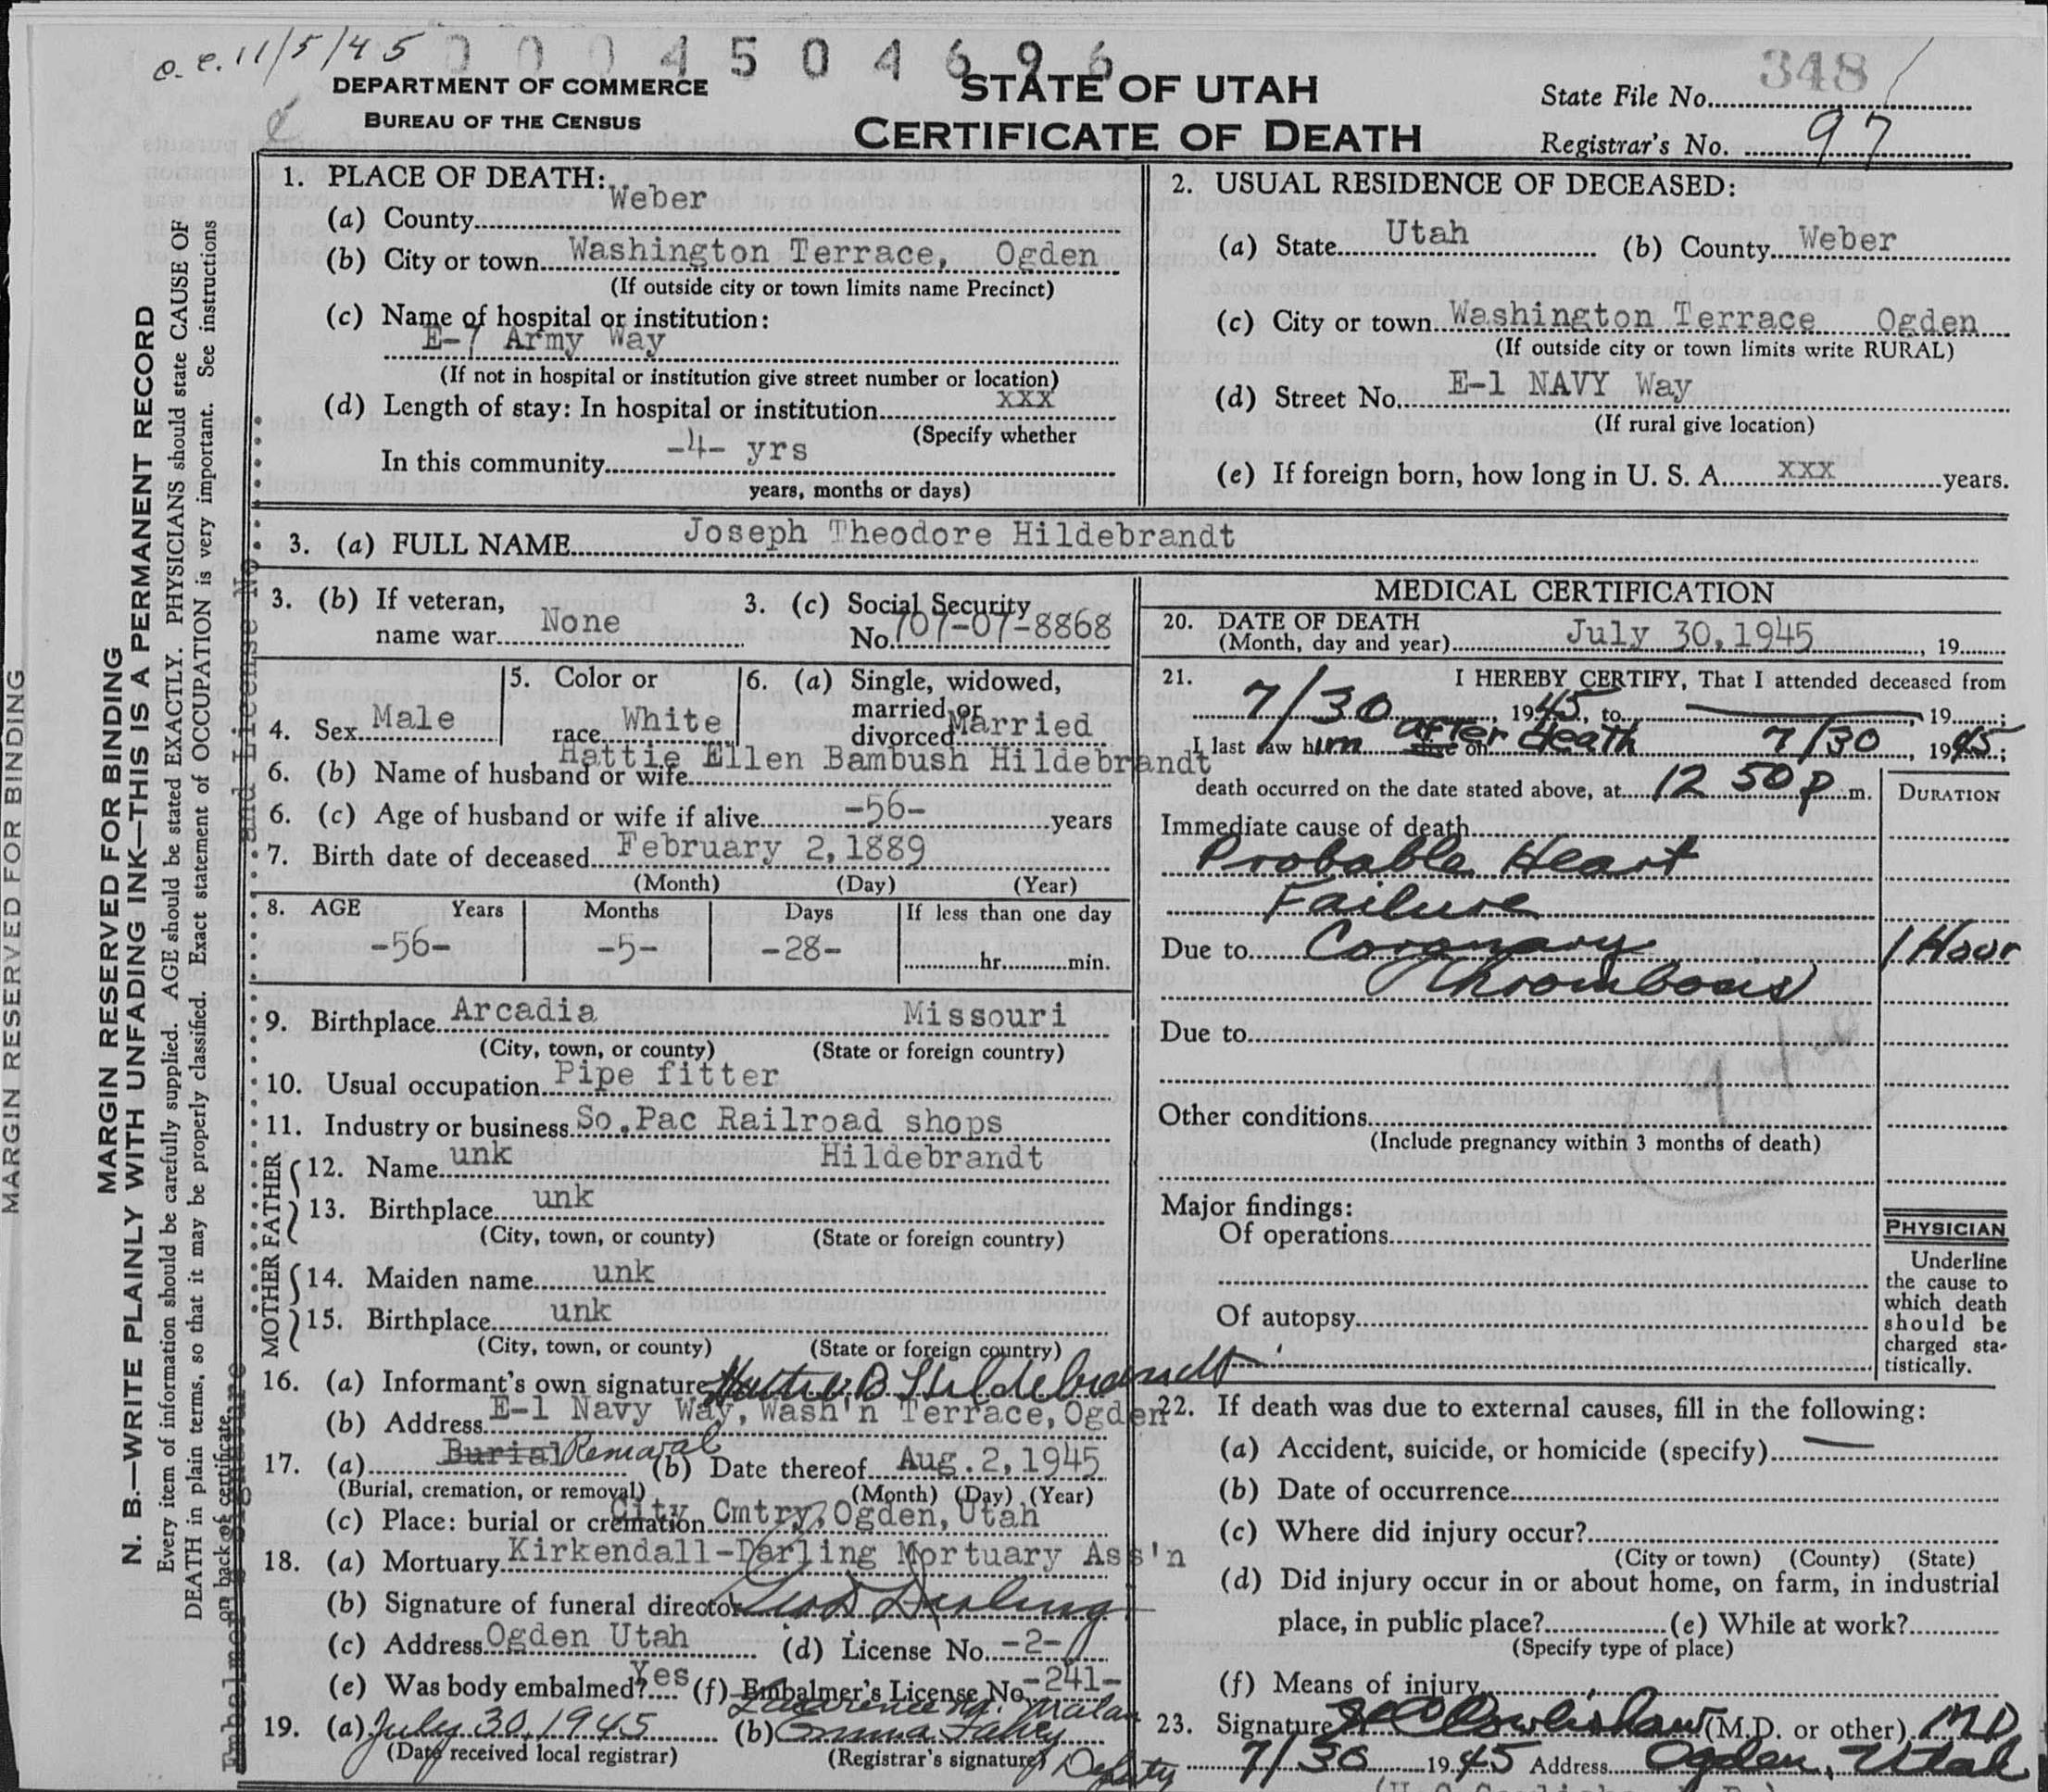 o. c. 11/5/45
0 0 0 4 5 0 4 6 9 6
DEPARTMENT OF COMMERCE
BUREAU OF THE CENSUS
STATE OF UTAH
CERTIFICATE OF DEATH
State File No. 348
Registrar's No. 97
MARGIN RESERVED FOR BINDING
MARGIN RESERVED FOR BINDING
N. B.—WRITE PLAINLY WITH UNFADING INK—THIS IS A PERMANENT RECORD
Every item of information should be carefully supplied. AGE should be stated EXACTLY. PHYSICIANS should state CAUSE OF
DEATH in plain terms, so that it may be properly classified. Exact statement of OCCUPATION is very important. See instructions
on back of certificate.
Embelmer's Signature and License No.
1. PLACE OF DEATH:
(a) County Weber
(b) City or town Washington Terrace, Ogden
(If outside city or town limits name Precinct)
(c) Name of hospital or institution:
E-7 Army Way
(If not in hospital or institution give street number or location)
(d) Length of stay: In hospital or institution xxx
(Specify whether
In this community -4- yrs
years, months or days)
2. USUAL RESIDENCE OF DECEASED:
(a) State Utah (b) County Weber
(c) City or town Washington Terrace Ogden
(If outside city or town limits write RURAL)
(d) Street No. E-1 NAVY Way
(If rural give location)
(e) If foreign born, how long in U. S. A. xxx years.
3. (a) FULL NAME Joseph Theodore Hildebrandt
3. (b) If veteran,
name war None
3. (c) Social Security
No. 707-07-8868
4. Sex Male
5. Color or
race White
6. (a) Single, widowed,
married or
divorced Married
6. (b) Name of husband or wife Hattie Ellen Bambush Hildebrandt
6. (c) Age of husband or wife if alive -56- years
7. Birth date of deceased February 2, 1889
(Month) (Day) (Year)
8. AGE Years Months Days If less than one day
-56- -5- -28- hr. min.
9. Birthplace Arcadia Missouri
(City, town, or county) (State or foreign country)
10. Usual occupation Pipe fitter
11. Industry or business So.Pac Railroad shops
FATHER
12. Name unk Hildebrandt
13. Birthplace unk
(City, town, or county) (State or foreign country)
MOTHER
14. Maiden name unk
15. Birthplace unk
(City, town, or county) (State or foreign country)
16. (a) Informant's own signature Hattie B Hildebrandt
(b) Address E-1 Navy Way, Wash'n Terrace, Ogden
17. (a) Burial Removal (b) Date thereof Aug. 2, 1945
(Burial, cremation, or removal) (Month) (Day) (Year)
(c) Place: burial or cremation City Cmtry, Ogden, Utah
18. (a) Mortuary Kirkendall-Darling Mortuary Ass'n
(b) Signature of funeral director Geo D Darling
(c) Address Ogden Utah (d) License No. -2-
(e) Was body embalmed? Yes (f) Embalmer's License No. -241-
Lawrence N. Malan
19. (a) July 30, 1945 (b) Emma Fahey
(Date received local registrar) (Registrar's signature) Deputy
MEDICAL CERTIFICATION
20. DATE OF DEATH
(Month, day and year) July 30, 1945, 19
21. I HEREBY CERTIFY, That I attended deceased from
7/30, 1945, to , 19 ;
I last saw him alive on after death 7/30, 1945;
death occurred on the date stated above, at 12 50 p m.
DURATION
Immediate cause of death
Probable Heart
Failure
Due to Coronary 1 Hour
Thrombosis
Due to
Other conditions
(Include pregnancy within 3 months of death)
Major findings:
Of operations
Of autopsy
PHYSICIAN
Underline
the cause to
which death
should be
charged sta-
tistically.
22. If death was due to external causes, fill in the following:
(a) Accident, suicide, or homicide (specify) —
(b) Date of occurrence
(c) Where did injury occur?
(City or town) (County) (State)
(d) Did injury occur in or about home, on farm, in industrial
place, in public place? (e) While at work?
(Specify type of place)
(f) Means of injury
23. Signature (M.D. or other) MD
7/30 1945 Address Ogden, Utah